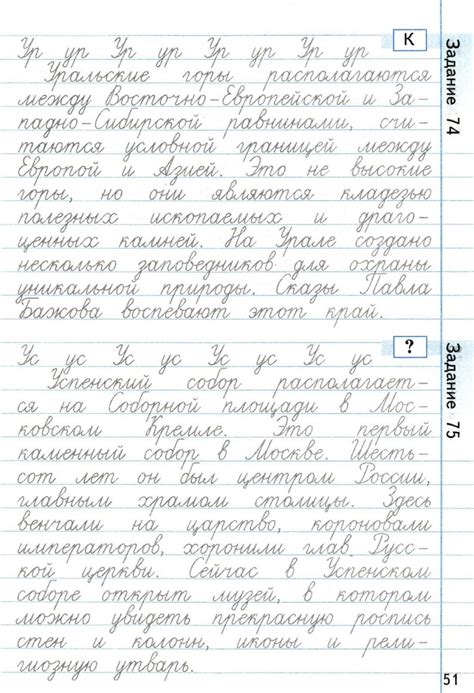 К
Задание 74
Ур ур Ур ур Ур ур Ур ур
Уральские горы располагаются
между Восточно-Европейской и За-
падно-Сибирской равнинами, счи-
таются условной границей между
Европой и Азией. Это не высокие
горы, но они являются кладезью
полезных ископаемых и драго-
ценных камней. На Урале создано
несколько заповедников для охраны
уникальной природы. Сказы Павла
Бажова воспевают этот край.
?
Задание 75
Ус ус Ус ус Ус ус Ус ус
Успенский собор располагает-
ся на Соборной площади в Мос-
ковском Кремле. Это первый
каменный собор в Москве. Шесть-
сот лет он был центром России,
главным храмом столицы. Здесь
венчали на царство, короновали
императоров, хоронили глав Русс-
кой церкви. Сейчас в Успенском
соборе открыт музей, в котором
можно увидеть прекрасную роспись
стен и колонн, иконы и рели-
гиозную утварь.
51